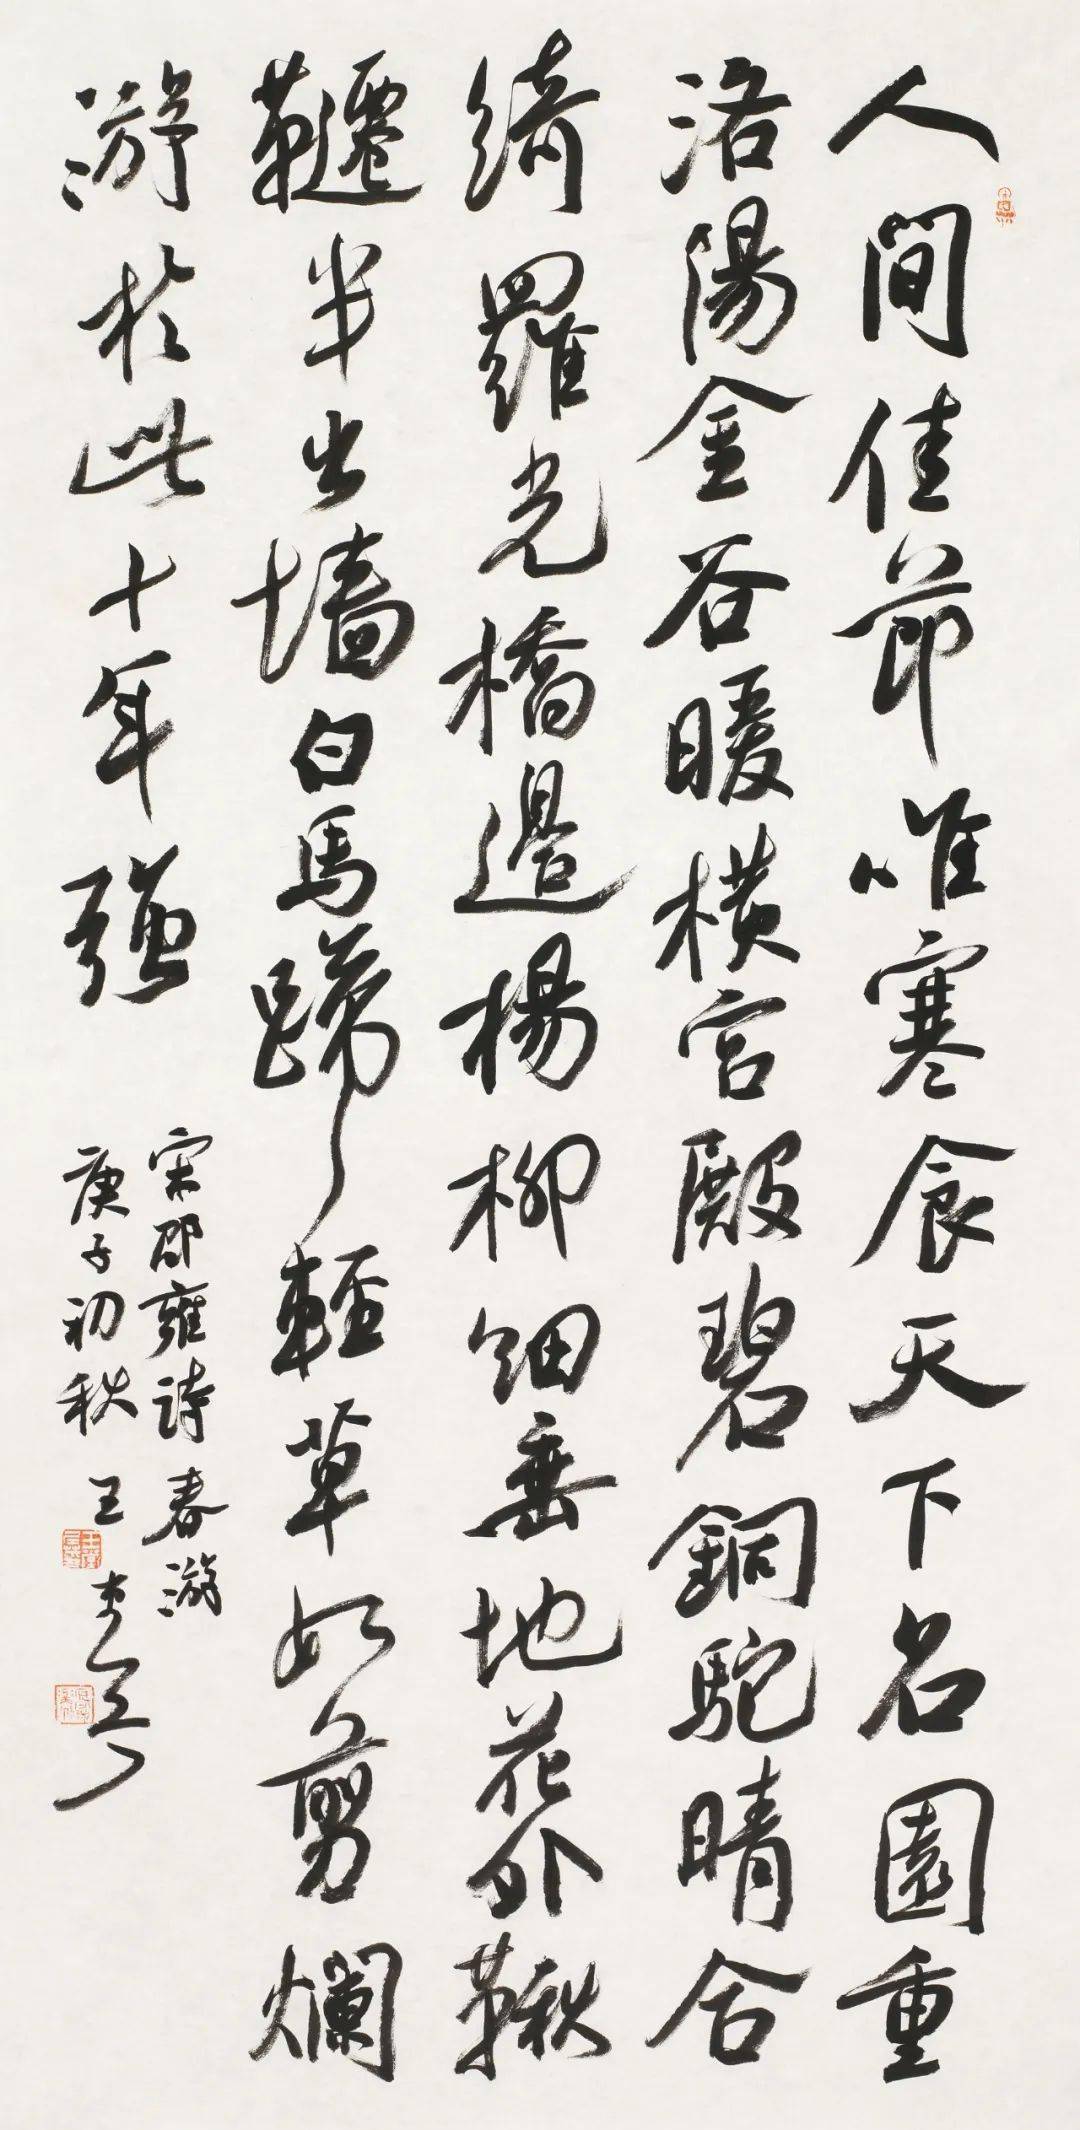 人間佳節唯寒食天下名園重
洛陽金谷暖横宮殿碧銅駝晴合
綺羅光橋邊楊柳細垂地花外鞦
韆半出墻白馬蹄輕草如剪爛
游於此十年強
宋邵雍詩春游
庚子初秋王